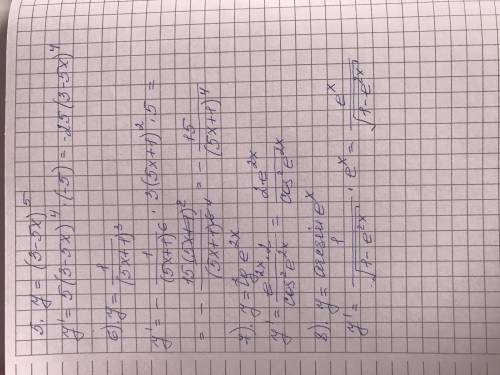 5. y = (3-5x)^5
y' = 5(3-5x)^4 · (-5) = -25(3-5x)^4
6). y = 1/(5x+1)^3
y' = - 1/(5x+1)^6 · 3(5x+1)^2 · 5 =
= - 15(5x+1)^2/(5x+1)^6 4 = - 15/(5x+1)^4
7). y = tg e^2x
y' = e^2x · 2/cos^2 e^2x = 2e^2x/cos^2 e^2x
8). y = arcsin e^x
y' = 1/√(1-e^2x) · e^x = e^x/√(1-e^2x)